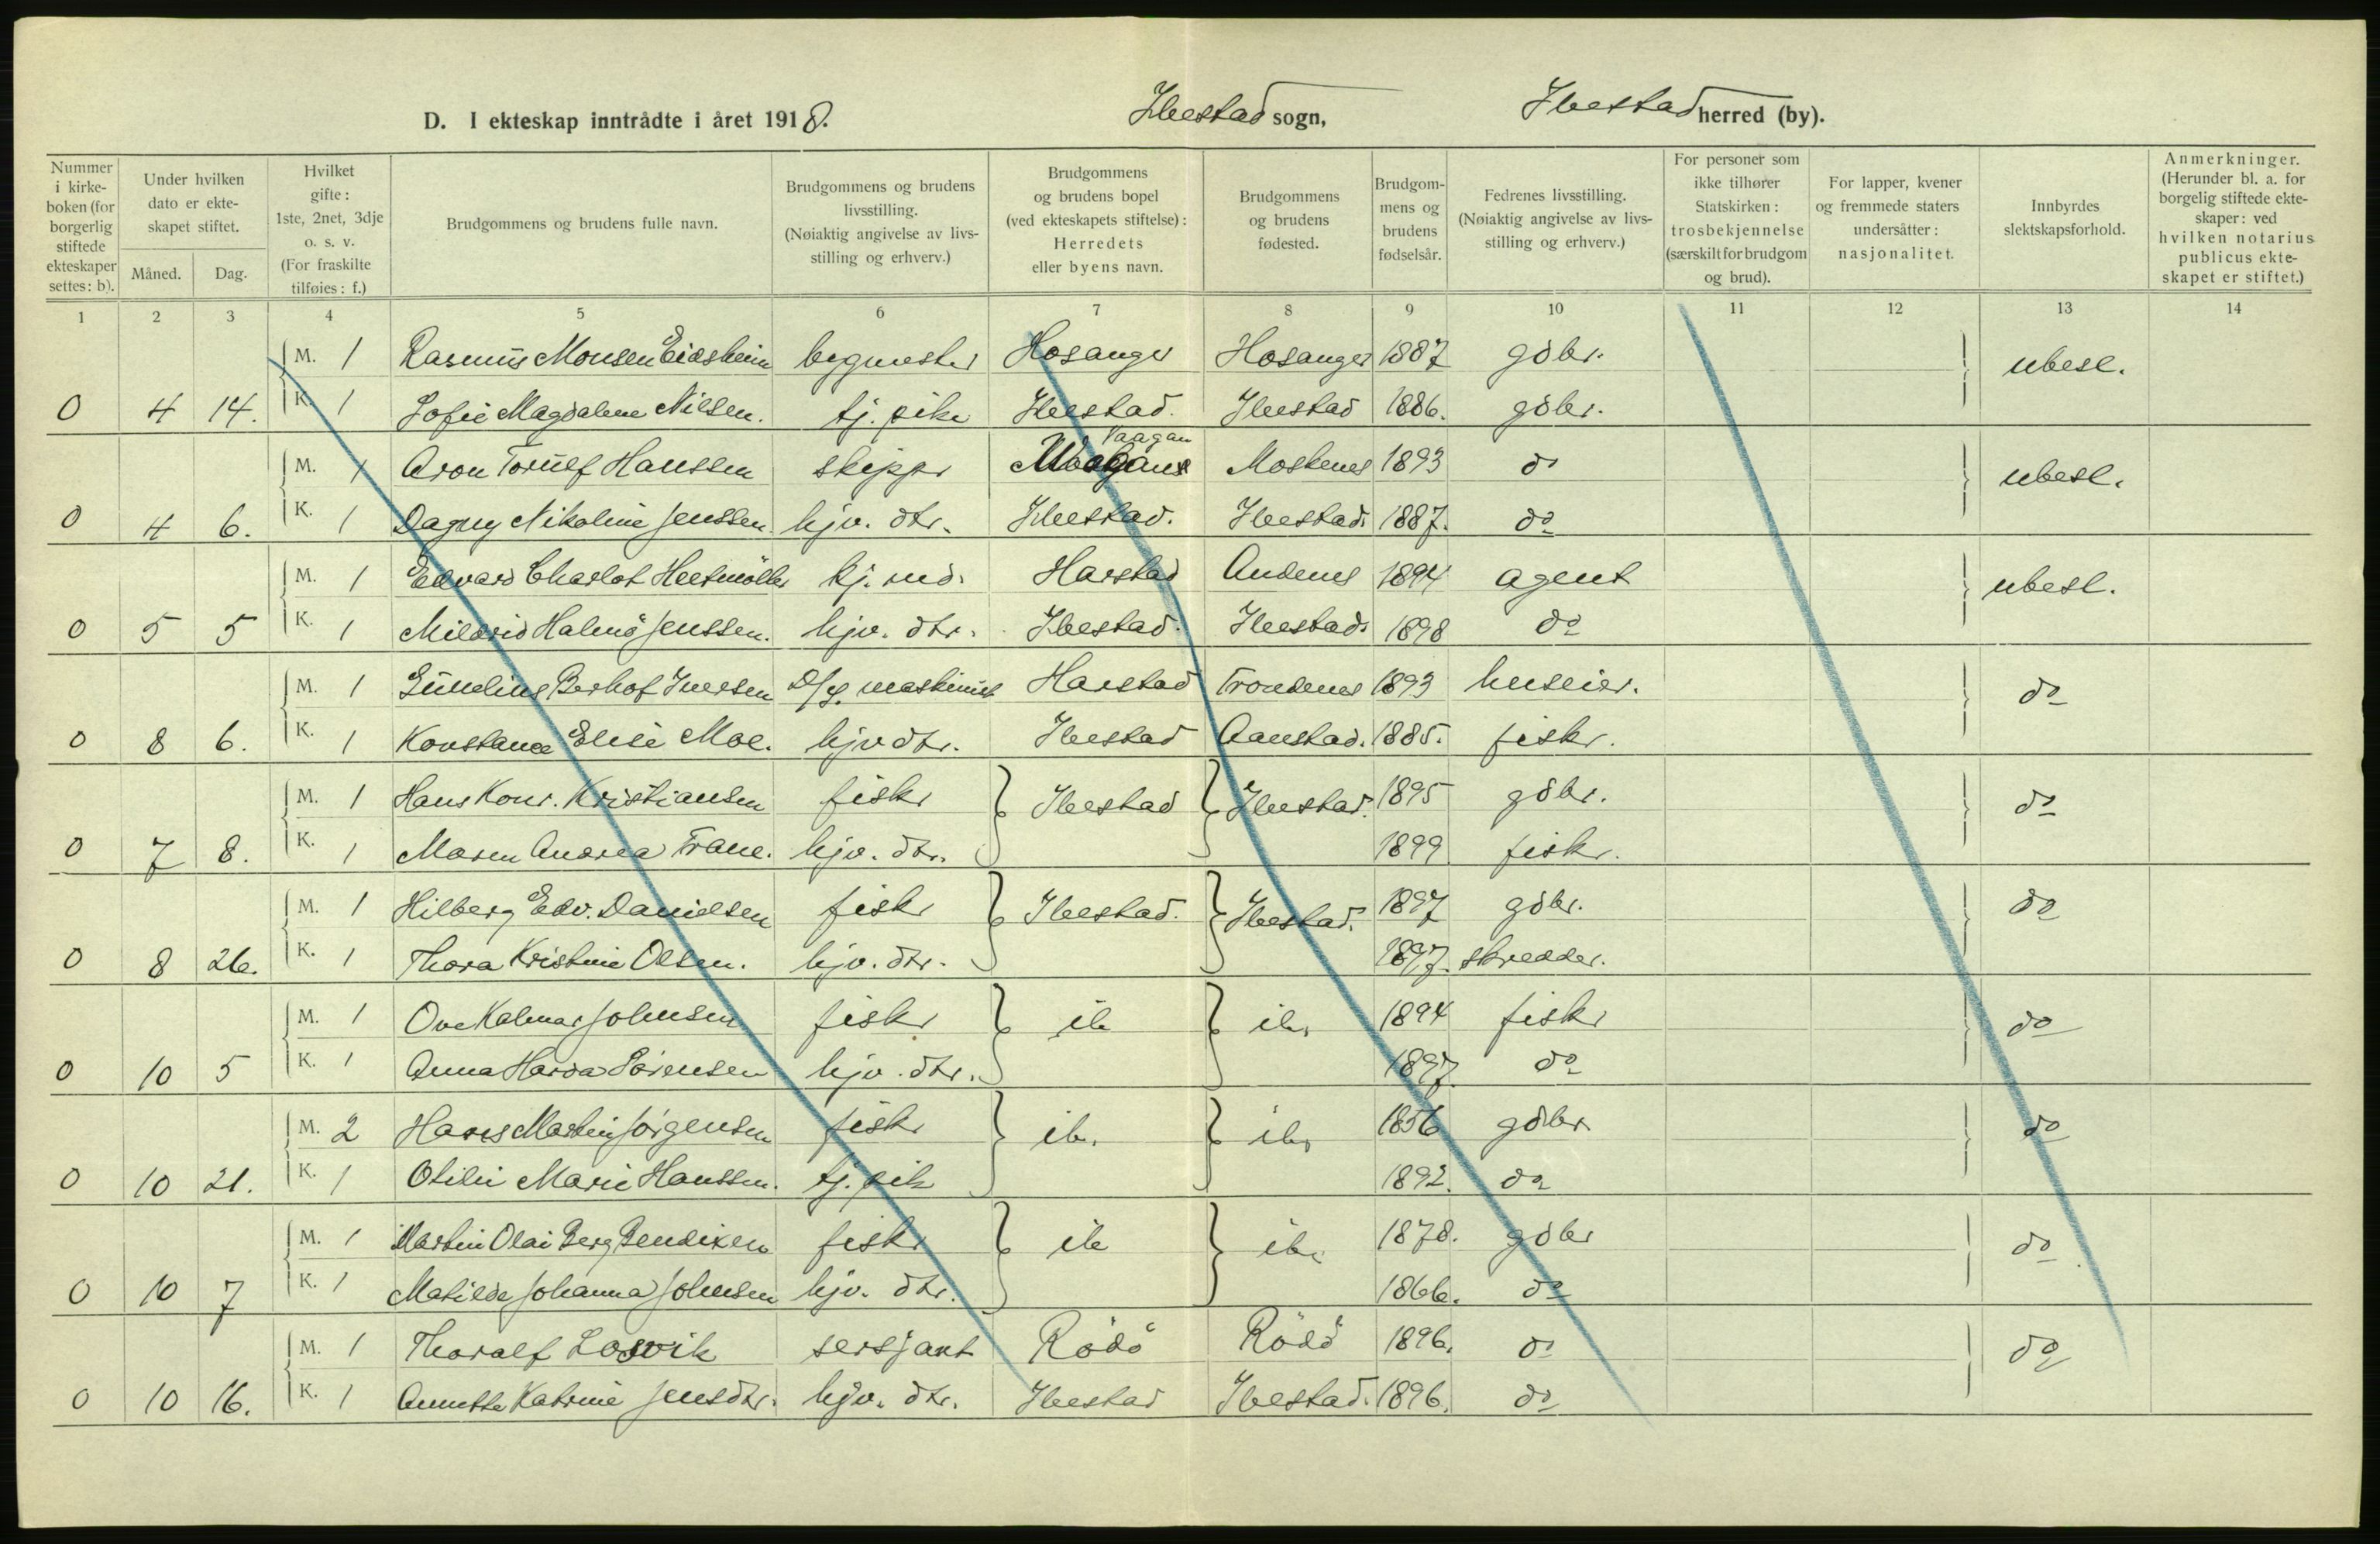 D. I ekteskap inntrådte i året 1918. Ibestad sogn, Ibestad herred (by).
Nummer i kirkeboken (for borgerlig stiftede ekteskaper settes: b).
Under hvilken dato er ekteskapet stiftet.
Måned. Dag.
Hvilket gifte: 1ste, 2net, 3dje o. s. v. (For fraskilte tilføies: f.)
Brudgommens og brudens fulle navn.
Brudgommens og brudens livsstilling. (Nøiaktig angivelse av livsstilling og erhverv.)
Brudgommens og brudens bopel (ved ekteskapets stiftelse): Herredets eller byens navn.
Brudgommens og brudens fødested.
Brudgommens og brudens fødselsår.
Fedrenes livsstilling. (Nøiaktig angivelse av livsstilling og erhverv.)
For personer som ikke tilhører Statskirken: trosbekjennelse (særskilt for brudgom og brud).
For lapper, kvener og fremmede staters undersåtter: nasjonalitet.
Innbyrdes slektskapsforhold.
Anmerkninger. (Herunder bl. a. for borgelig stiftede ekteskaper: ved hvilken notarius publicus ekteskapet er stiftet.)
1 2 3 4 5 6 7 8 9 10 11 12 13 14
M. 1 Rasmus Monsen Eidsheim bygmester Hosanger Hosanger 1887 gdbr. ubesl.
0 4 14. K. 1 Sofie Magdalene Nilsen. tj. pike Ibestad. Ibestad 1886. gdbr.
Vaagan
M. 1 Aron Torulf Hanssen skipper Moskenes 1893 do ubesl.
0 4 6. K. 1 Dagny Nikoline Jenssen. hjv. dtr. Ibestad. Ibestad. 1887. do
M. 1 Edvard Charlot Heetmöller hj. md. Harstad Andenes 1894 agent ubesl.
0 5 5 K. 1 Mildrid Halmö Jenssen. hjv. dtr. Ibestad. Ibestad. 1898 do
M. 1 Berhof Iversen D/s. maskinist Harstad Trondenes 1893 huseier. do
0 8 6. K. 1 Konstance Elise Moe. hjv dtr. Ibestad Aanstad. 1885. fisker.
M. 1 Hans Konr. Kristiansen fisker Ibestad Ibestad. 1895 gdbr. do
0 7 8. K. 1 Maren Andrea Trane. hjv. dtr. 1899 fisker.
M. 1 Hilberg Edv. Danielsen fisker Ibestad. Ibestad. 1897 gdbr. do
0 8 26. K. 1 Thora Kristine Olsen. hjv. dtr. 1897. skredder.
M. 1 Ove Kalmar Johnsen fisker ib ib. 1894 fisker do
0 10 5 K. 1 Anna Harda Sörensen hjv. dtr. 1897. do
M. 2 Hans Martin Jörgensen fisker ib. ib. 1856 gdbr. do
0 10 21. K. 1 Otilie Marie Hanssen. tj. pik 1892. do
M. 1 Martin Olai Berg Bendixen fisker ib ib. 1878. gdbr do
0 10 7 K. 1 Matilde Johanna Johnsen hjv. dtr. 1866. do
M. 1 Thoralf Losvik sersjant Rödö Rödö 1896. do do
0 10 16. K. 1 Annette Katrine Jensdtr. hjv. dtr. Ibestad Ibestad. 1896. do